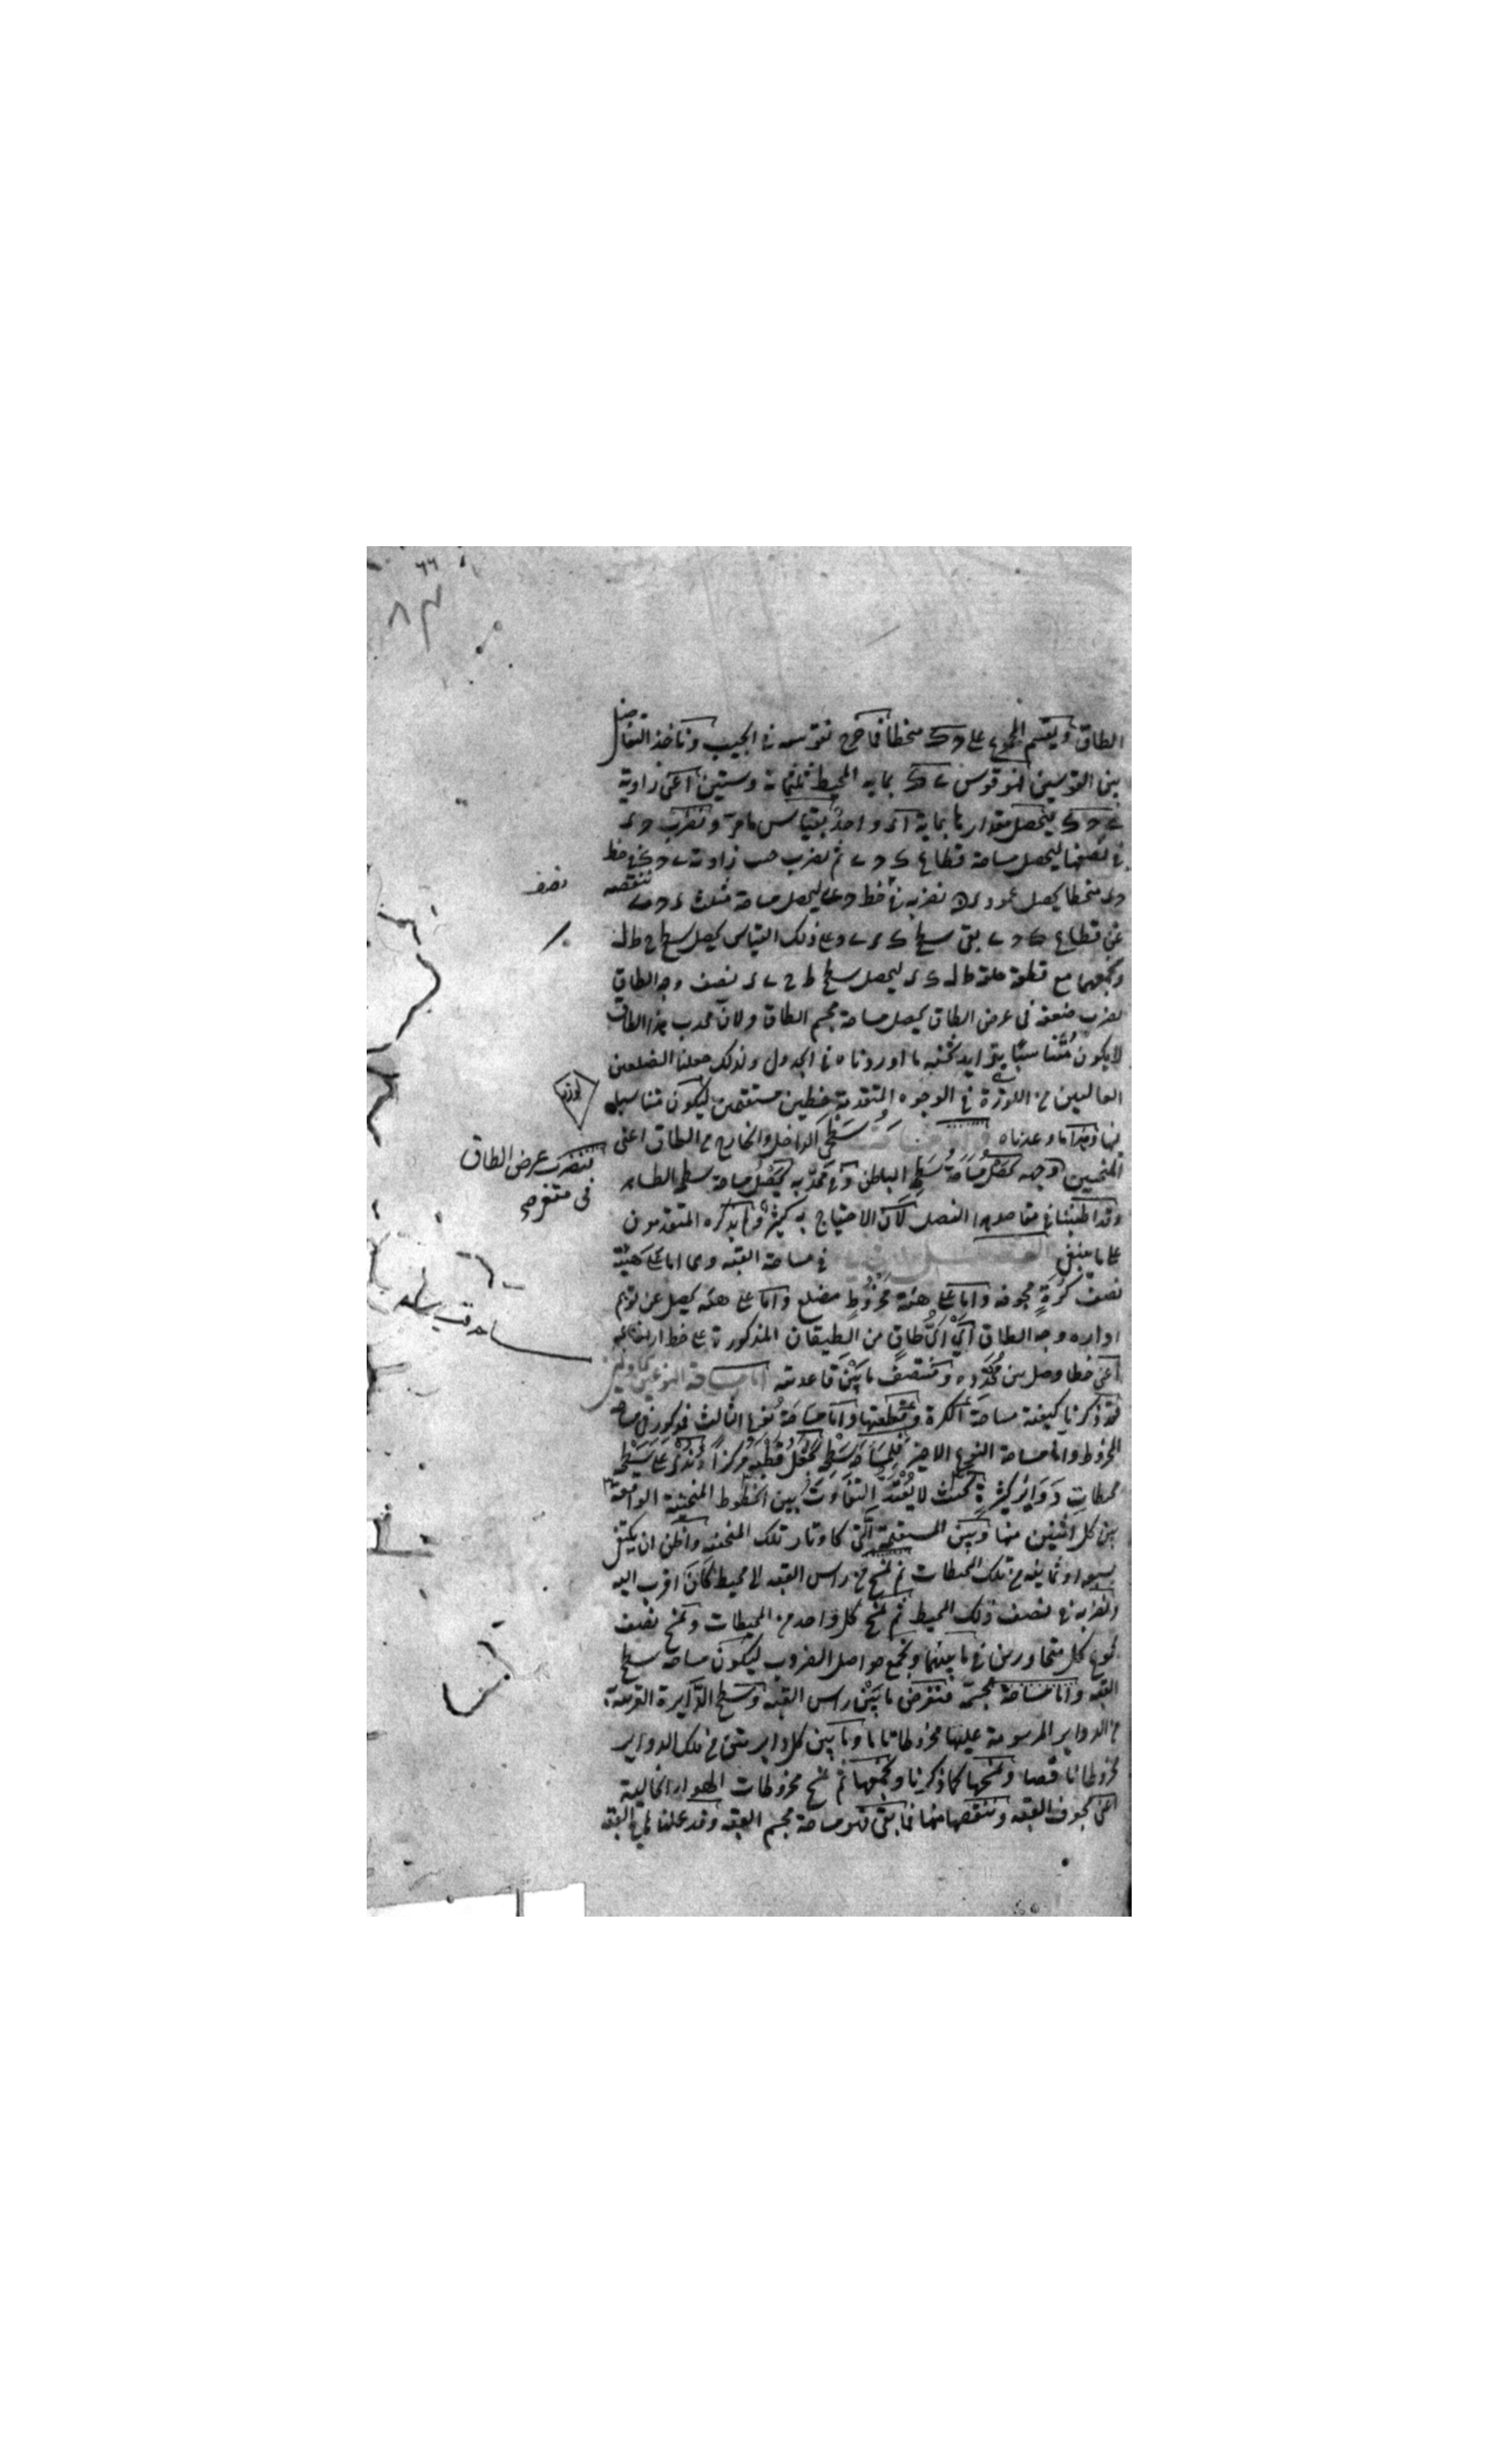 الطاق ويقسم المجموع على حك منحطا فما خرج نقوسه في الجيب وناخذ التفاضل
بين القوسين فهو قوس ى ك بما به المحيط ثلثمائة وستين اعنى زاوية
ى ح ك ليحصل مقدارها بما به اى واحد بقياس ما مر ونضرب ح ى
في نصفها ليحصل مساحة قطاع ك ح ى ثم نضرب جيب زاوية ى ح ك في خط
ح ى منحطا يحصل عمود ى نضربه في خط ح ليحصل مساحة مثلث ى ح ننقصه
نصف
عن قطاع ك ح ى بقى سطح ك ى وعلى ذلك القياس يحصل سطح ح ط ل
ونجمعهما مع قطعة حلقة ط ل ك ى ليحصل سطح ط ح ى نصف وجه الطاق
نضرب ضعفه في عرض الطاق يحصل مساحة مجسم الطاق ولان محدب هذا الطاق
لا يكون متناسبا بتزايد ثخنه ما اوردناه في الجدول ولذلك جعلنا الضلعين
العاليين من اللوزة في الوجوه المتقدمة خطين مستقيمين ليكون متناسبا
لوزه
لها وهذا ما وعدناه واما مساحة سطحى الداخل والخارج من الطاق اعنى
فنضرب عرض الطاق
في مقعر
المنحنيين وجهه يحصل مساحة سطح الباطن وفى محدبه يحصل مساحة سطح الظاهر
وقد اطنبنا في مقاصد هذا الفصل لان الاحتياج به كثير ولم يذكره المتقدمون
على ما ينبغى الفصل في مساحة القبه وهى اما على هيئة
نصف كرة مجوفه واما على هيئة مخروط مضلع واما على هيئه يحصل عن توهم
اداره وجه الطاق اى طاق من الطيقان المذكورة على خط ارتفاعه
اعنى خطا وصل بين محدبه ومنتصف ما بين قاعدته اما مساحة النوعين الاولين
فقد ذكرنا كيفية مساحة الكرة وقطعتها واما مساحة نوعها الثالث فمذكور في مساحة
المخروط واما مساحة النوع الاخير فلمساحة سطحه نجعل قطبه مركزا وندير على سطحه
محيطات دواير كثيرة بحيث لا يعتد التفاوت بين الخطوط المنحنية الواقعة
بين كل اثنين منها وبين المستقيمة التى كاوتار تلك المنحنيه واظن ان يكتفى
بسبعه او ثمانيه من تلك المحيطات ثم نمسح من راس القبه الى محيط كان اقرب اليه
ونضربه في نصف ذلك المحيط ثم نمسح كل واحد من المحيطات ونمسح نصف
مجموع كل متجاورين في ما بينهما ونجمع حواصل الضروب ليكون مساحة سطح
القبه واما مساحة مجسمه فنفرض ما بين راس القبه وسطح الدايرة القريبة
من الدواير المرسومة عليها مخروطا تاما وما بين كل دايرتين من تلك الدواير
مخروطا ناقصا ونمسحها كما ذكرنا ونجمعها ثم نمسح مخروطات الهواء الخالية
اعنى تجوف القبه وننقصها منها فما بقى فهو مساحة مجسم القبه وقد عملنا لمساحة القبه